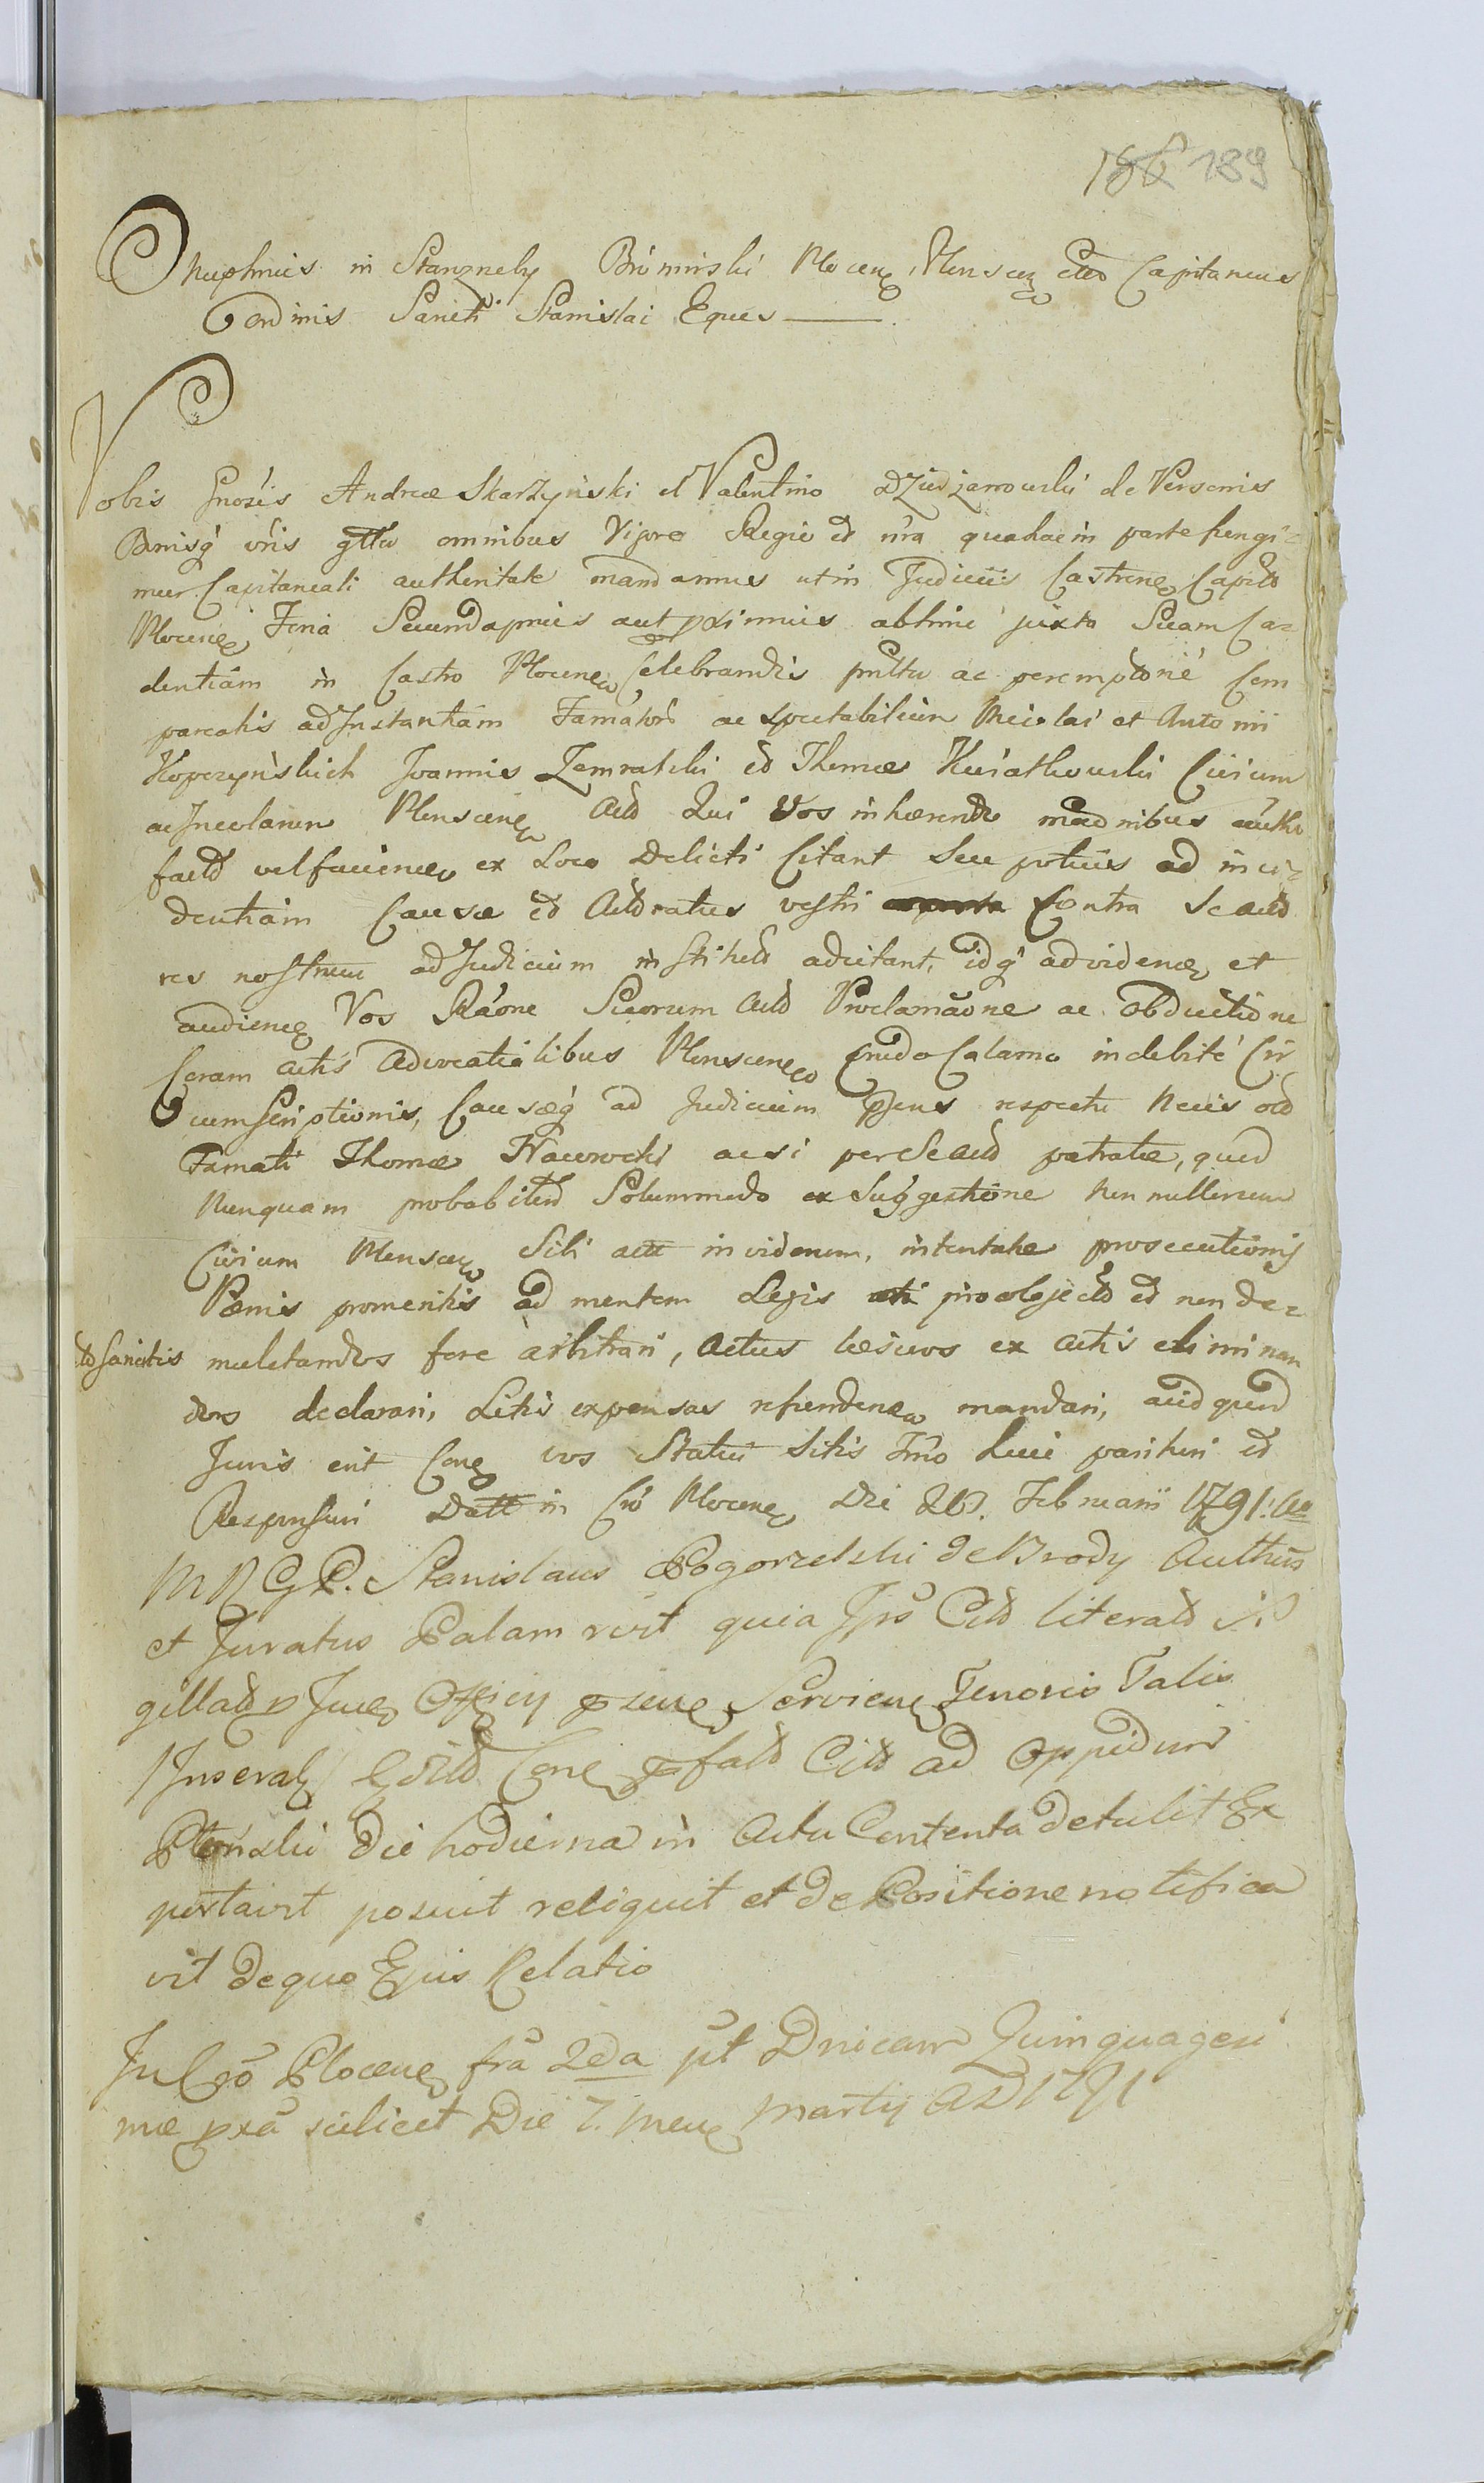 189
Onuphrius in Skarznely Bromirski Plocen, Plonscen etto Capitaneus
Ordinis Sancti Stanislai Eques
Vobis Gnosis Andreæ Skarzyński et Valentino Dziedzanowski de Personis
Bonisq vris gttr omnibus Vigore Regio et nra qua hac in parte fungi-
mur Capitaneali authoritate mandamus ut in Judiciis Castren Capitto
Plocen Feria Secunda pnis aut pximius abhinc juxta Suam Ca-
dentiam in Castro Plocen Celebrandis pnltr ac peremptorie Com
pareatis ad Instantiam Famator ac Spectabilium Nicolai et Antonii
Kopczyńskich Joannis Zemratski et Thomæ Kwiatkowski Civium
ac Incolarum Plonscen Actt Qui Vos inhærendo
factt vel faciene ex Loco Delicti Citant Seu potius ad inci-
dentiam Causæ et Acttoratus vestri Contra Se actt
res nostrum ad Judicium institutt adcitant, idq ad videne et
audiene Vos Raone Suorum Actt Proclamaone ac obductione
Coram actis Advocatialibus Plonscen Crudo Calamo indebité Cir
cumscriptionis, Causæq ad Judicium psens respectu Necis ol
Famati Thomæ Nawrocki ac si per Se actt patratæ, quod
Nunquam probabitur Solummodo ex Suggestione non nullorum
Civium Plonscen Sibi actt invidorum, intentatæ prosecutionis
Pœnis promeritis ad mentem Legis pro objectt et non de-
to sancitis mulctandos fore arbitrari, Actus læsivos ex actis eliminan
dos declarari, Litis expensas refundene mandari, aud quod
Juris erit Cone vos Statui Sitis Tmo huic parituri et
Responsuri Datt in Cro Plocen Die 28. Februarii 1791. Ao
M R G P. Stanislaus Pogorzelski de Brody Authus
et Juratus Palam rvit quia Ips Citt literatt Si
gillatt p Jne Officy psene Serviene Tenoris Talis
/Inserat/ Editt Cone pfatt Citt ad Oppidum
Płońsk Die hodierna in Actu Contenta detulit Ex
portavit posuit reliquit et de Positione notifica
vit de quo Ejus Relatio
In Cro Plocen fra 2da pt Dnicam Quinquagesi
mæ pxa scilicet Die 7. Mens Martij AD 1791